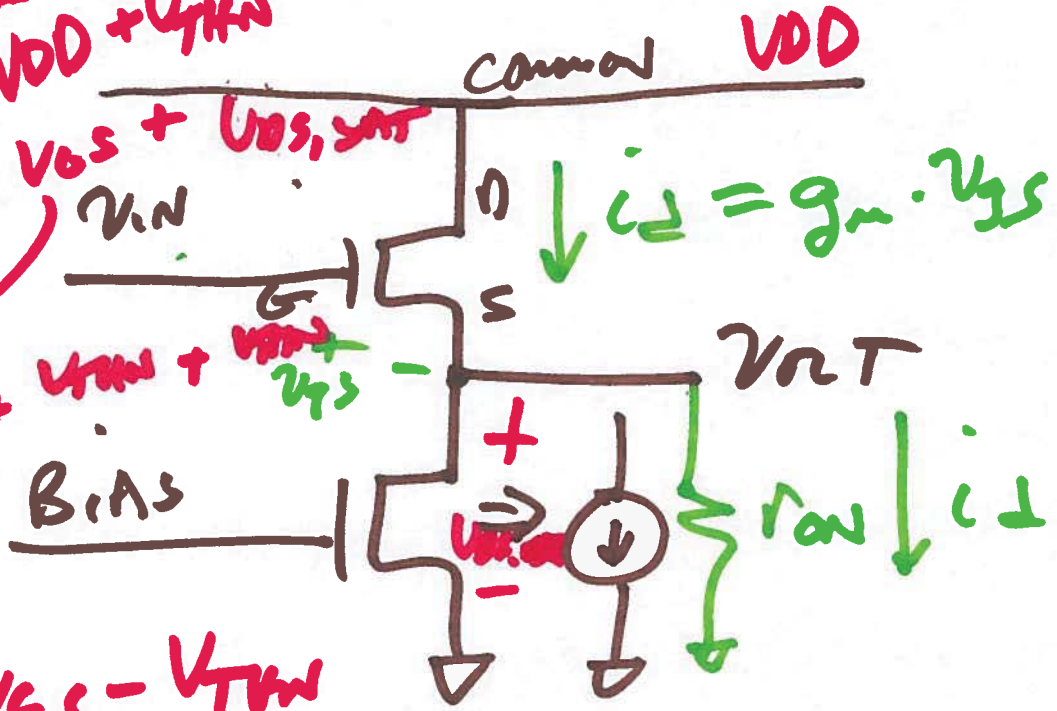 VDD + VTHN
common
VDD
VGS + VDS,SAT
VIN
D
id = gm · vgs
G
S
VTHN +
+
vgs
-
VOUT
+
BIAS
⇒
ron
id
-
VGS - VTHN